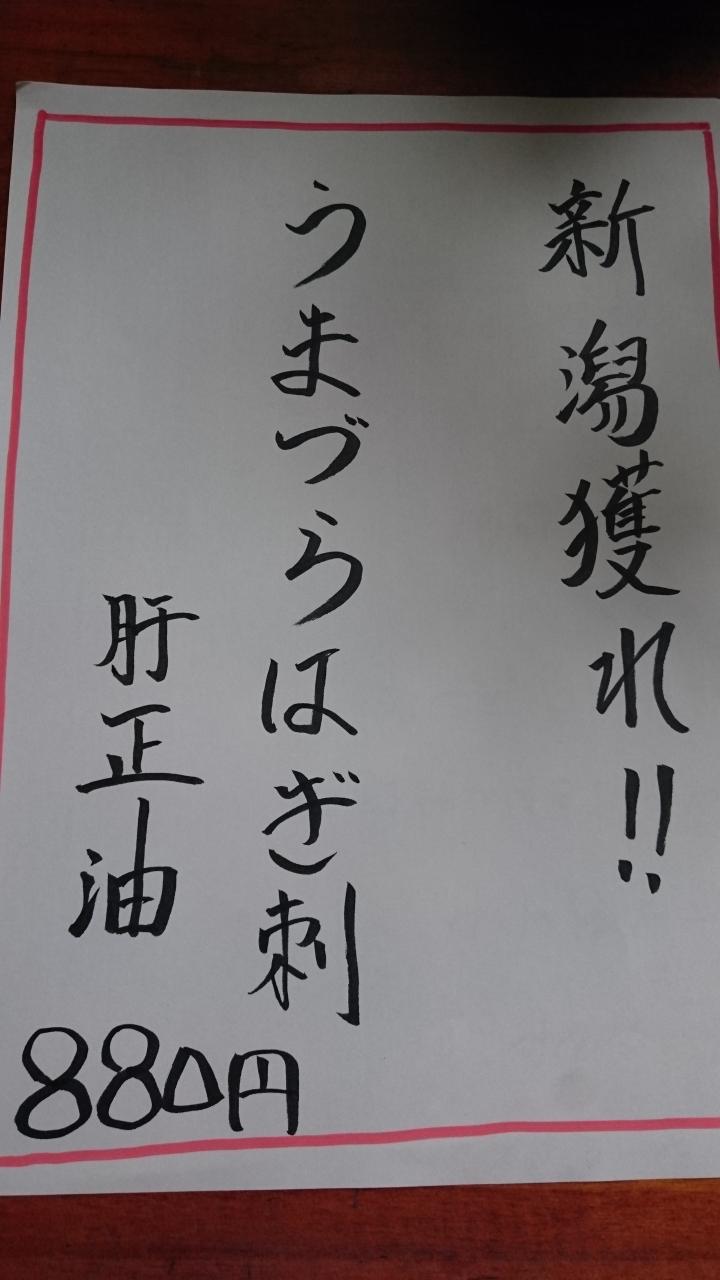 新潟獲れ!!
うまづらはぎ刺
肝正油
880円